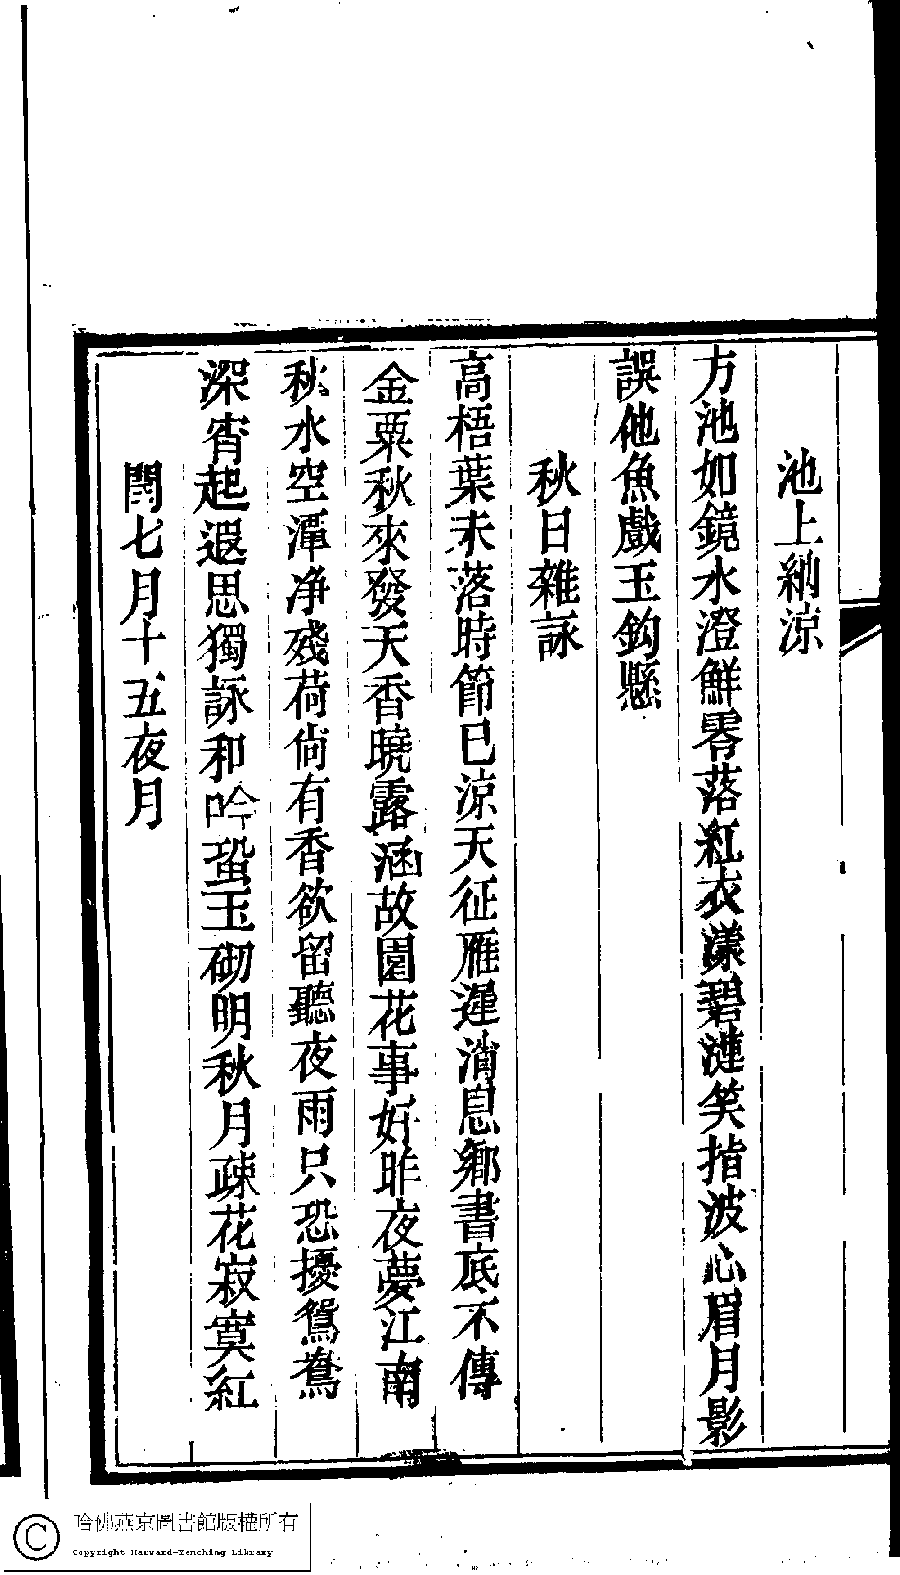 池上納涼
方池如鏡水澄鮮零落紅衣漾碧漣笑指波心眉月影
誤他魚戲玉鈎懸
秋日雜詠
高梧葉未落時節已涼天征雁遲消息鄉書底不傳
金粟秋來發天香曉露涵故園花事好昨夜夢江南
秋水空潭净殘荷尙有香欲留聽夜雨只恐擾鴛鴦
深宵起遐思獨詠和吟蛩玉砌明秋月疎花寂寞紅
閏七月十五夜月
哈佛燕京圖書館版權所有
Copyright Harvard-Yenching Library